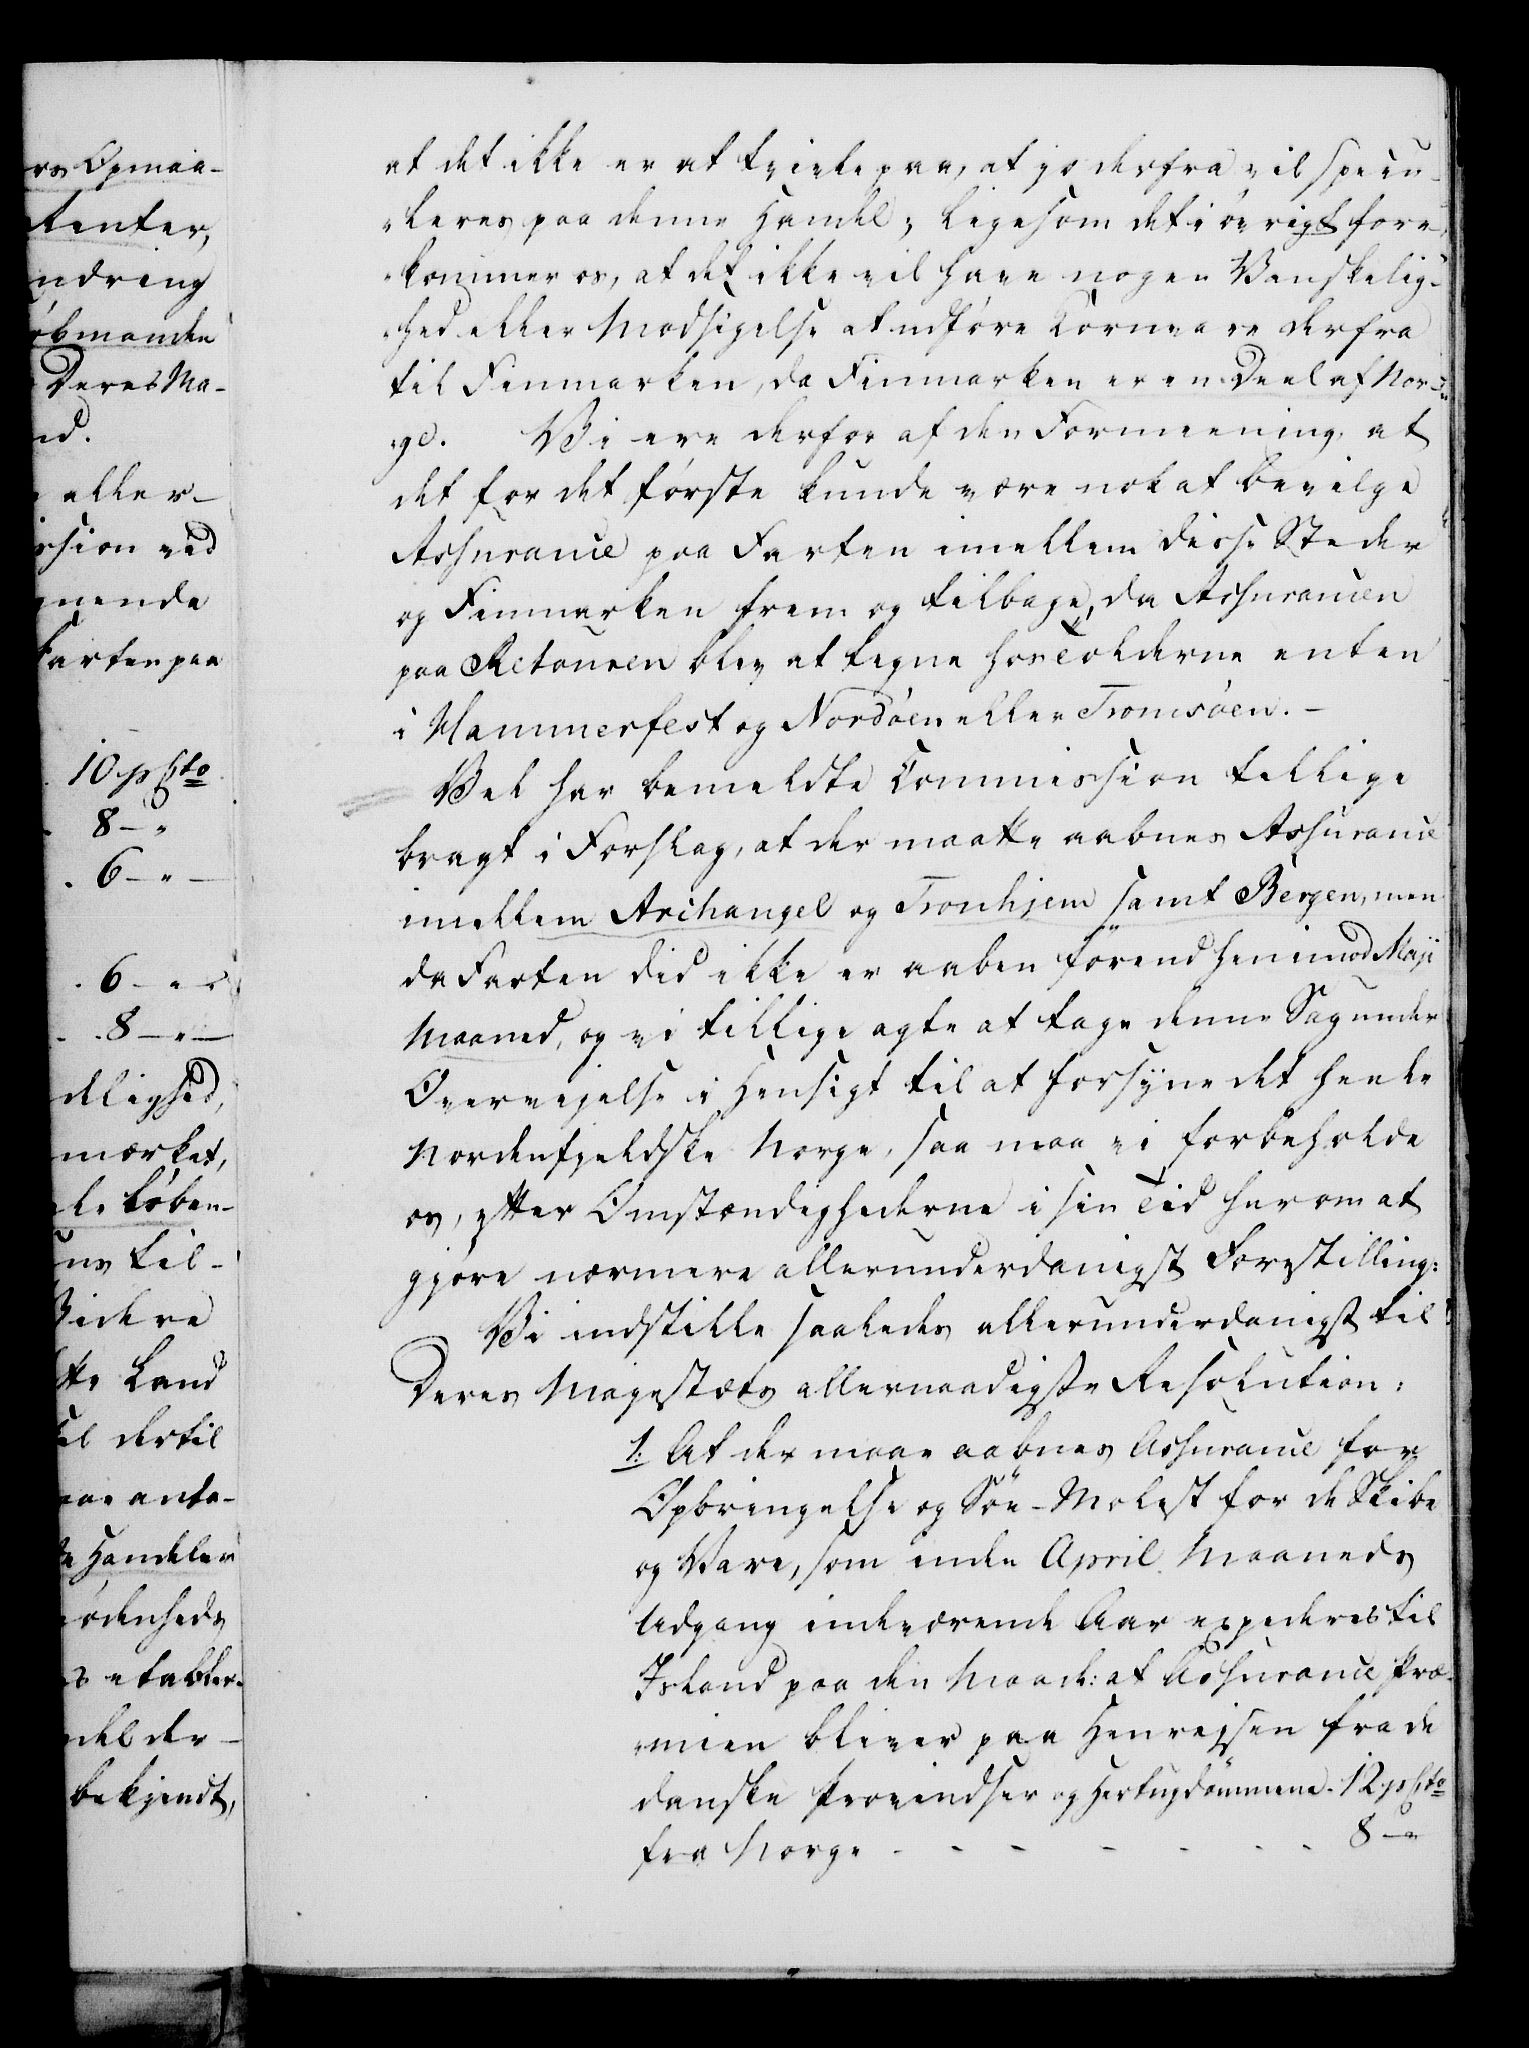 rs Opmaa-
tenter,
ndring
öbmanden
Deres Ma-
nd.
aller-
ssion ved
nende
Farten paa
10 p Cto
8 - "
6 - " -
6 - " -
8 - " -
dlighed,
mærket,
le Köben-
ns til-
Videre
tte Land
el dertil
anta-
Handeler
ödenheds
etabler-
del der-
bekjendt,
at det ikke er at tvivle paa, at jo derfra vil specu-
"leres paa denne Handel; ligesom det i övrigt fore-
"kommer os, at det ikke vil have nogen Vanskelig-
"hed eller Modsigelse at udföre Kornvare derfra
til Finmarken, da Finmarken er en Deel af Nor-
"ge. Vi ere derfor af den Formeening, at
det for det förste kunde være nok at bevilge
Assurance paa Farten imellem disse Steder
og Finmarken frem og tilbage, da Assurancen
paa Retouren blev at tegne hos Tolderne enten
i Hammerfest og Vardöen eller Tromsöen. -
Vel har bemeldte Commission tillige
bragt i Forslag, at der maatte aabnes Assurance
imellem Archangel og Tronhjem samt Bergen, men
da Farten did ikke er aaben förend henimod Maji
Maaned, og vi tillige agte at tage denne Sag under
Overvejelse i Hensigt til at forsÿne det heele
Nordenfjeldske Norge, saa maa vi forbeholde
os, efter Omstændighederne i sin Tid herom at
gjöre nærmere allerunderdanigst Forestilling:
Vi indstille saaledes allerunderdanigst til
Deres Majestæts allernaadigste Resolution:
1: At der maae aabnes Assurance for
Opbringelse og Söe-Molest for de Skibe
og Vare, som inden April Maaneds
Udgang indeværende Aar expederes til
Island paa den Maade: at Assurance Præ-
"mien bliver paa Henrejsen fra de
danske Provindser og Hertugdömmene. 12 p Cto
fra Norge - - - - - - - 8 - "